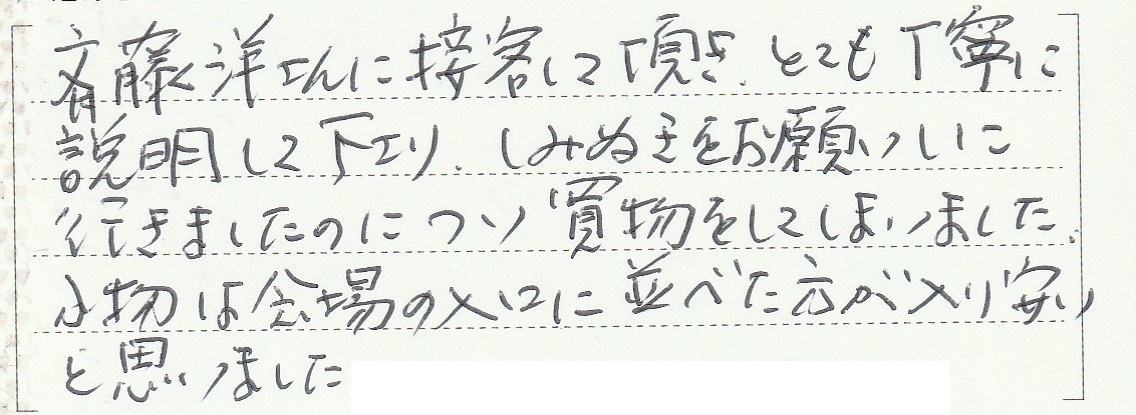 斉藤洋さんに接客して頂き、とても丁寧に
説明して下さり、しみぬきをお願いしに
行きましたのについ買物をしてしまいました。
小物は会場の入口に並べた方が入り安い
と思いました